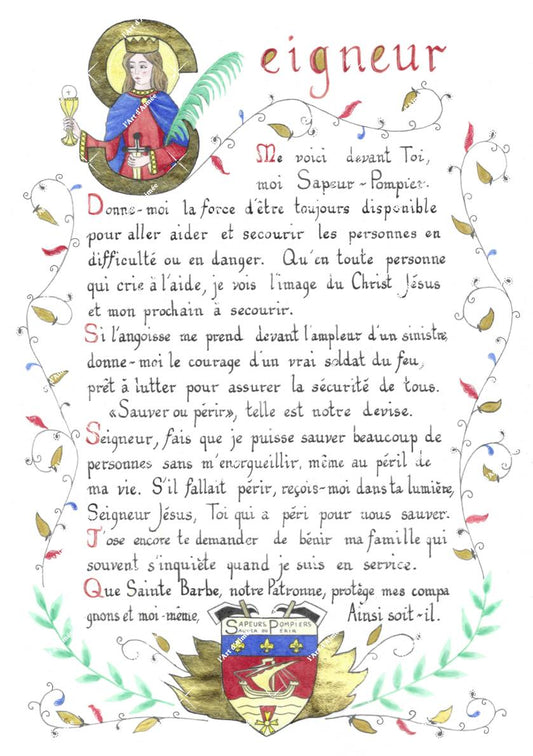 Seigneur
Me voici devant Toi,
moi Sapeur-Pompier.
Donne-moi la force d'être toujours disponible
pour aller aider et secourir les personnes en
difficulté ou en danger. Qu'en toute personne
qui crie à l'aide, je vois l'image du Christ Jésus
et mon prochain à secourir.
Si l'angoisse me prend devant l'ampleur d'un sinistre,
donne-moi le courage d'un vrai soldat du feu,
prêt à lutter pour assurer la sécurité de tous.
«Sauver ou périr», telle est notre devise.
Seigneur, fais que je puisse sauver beaucoup de
personnes sans m'enorgueillir, même au péril de
ma vie. S'il fallait périr, reçois-moi dans ta lumière,
Seigneur Jésus, Toi qui a péri pour nous sauver.
J'ose encore te demander de bénir ma famille qui
souvent s'inquiète quand je suis en service.
Que Sainte Barbe, notre Patronne, protège mes compa
gnons et moi-même, Ainsi soit-il.
SAPEURS POMPIERS
SAUVER OU PERIR